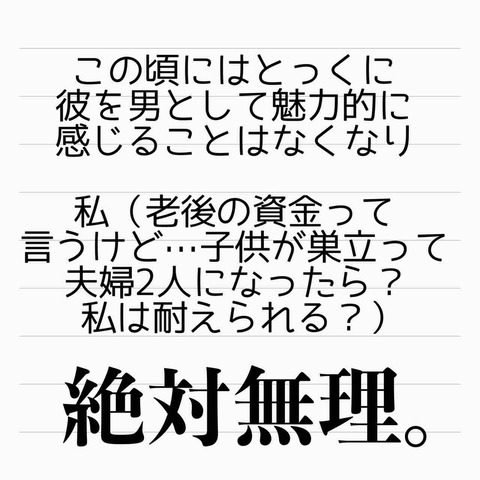 この頃にはとっくに
彼を男として魅力的に
感じることはなくなり
私（老後の資金って
言うけど…子供が巣立って
夫婦2人になったら？
私は耐えられる？）
絶対無理。